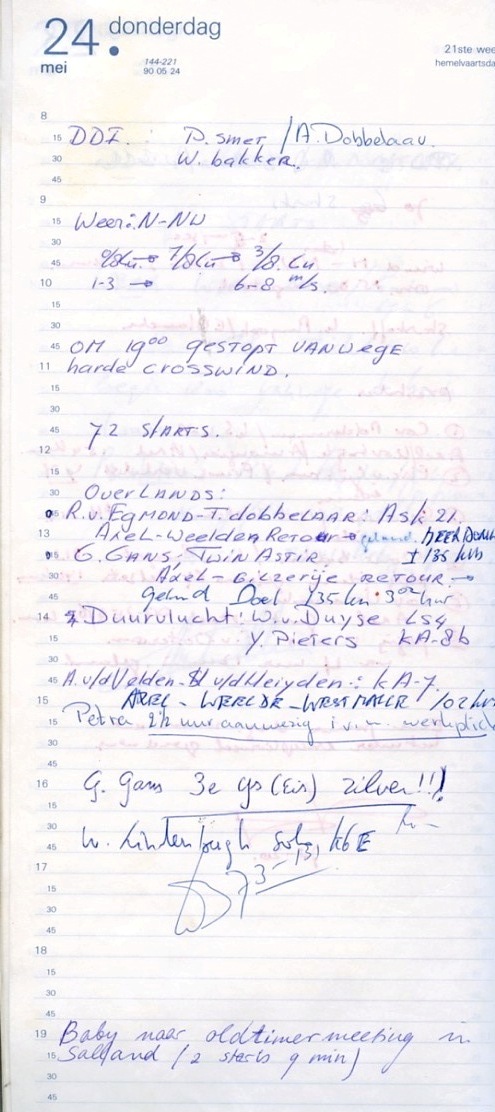 24. donderdag
mei 144-221
90 05 24
21ste wee
hemelvaartsda
8
15 DDI.: P. Smet / A. Dobbelaar.
30 W. bakker.
45
9
15 Weer: N-NW
30
45 7/8Cu → 3/8 Cu
10 1-3 → 6-8 m/s.
15
30
45 OM 19⁰⁰ gestopt VANWEGE
11 harde CROSSWIND.
15
30
45 72 STARTS.
12
15
30 OVERLANDS:
45 R.v. EGMOND-T. dobbelaar: Ask 21.
13 Axel-Weelden Retour →
15 G. GANS, TWIN ASTIR ± 135 km
30 Axel-Gilzerije RETOUR →
45 Doel 135 km 3 uur
14 Duurvlucht: W. v. Duyse LS4
15 Y. Pieters kA-8b
30
45 A. v/d Velden - v/d Heijden: kA-7
15 AXEL - WEELDE - WESTMALLE
15 Petra 2½ uur aanwezig i.v.m. werkplich
30
45
16 G. Gans 3e gs (Eis) zilver!!!
15
30
45 W. Lindenbergh solo, K6E
17
15
30
45
18
15
30
45
19 Baby naar oldtimermeeting in
15 Salland (2 starts 9 min)
30
45